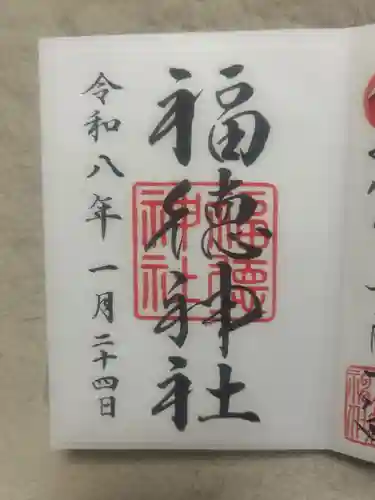 福徳神社
福德神社
令和八年一月二十四日